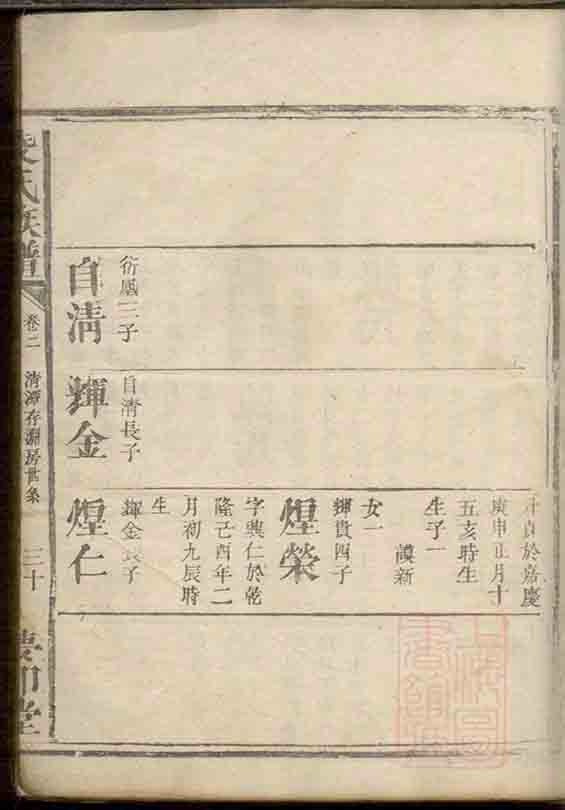 衍鳳三子
自清
自清長子
輝金
貞於嘉慶
庚申正月十
五亥時生
生子一
謨新
女一
輝貴四子
煌榮
字興仁於乾
隆己酉年二
月初九辰時
生
輝金長子
煌仁
氏族譜
卷二
清潭存淵房世系
三十
堂
上海圖
書館藏